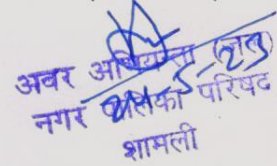 अवर अभियन्ता (जल)
नगर पालिका परिषद
शामली